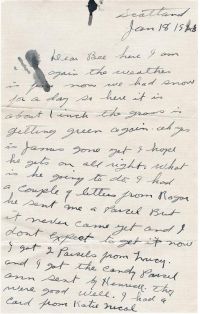 Scotland
Jan 18 19
Dear Bee here I am
again the weather
is now we had snow
for a day so here it is
about 1 inch the grass is
getting green again
is James gone yet I hope
he gets on all right what
is he going to do I had
a couple of letters from Roger
he sent me a Parcel But
it never came yet and I
dont Expect to get it now
I got 2 Parsels from
and I got the candy Parcel
ann sent by they
were good well. I had a
card from Katie